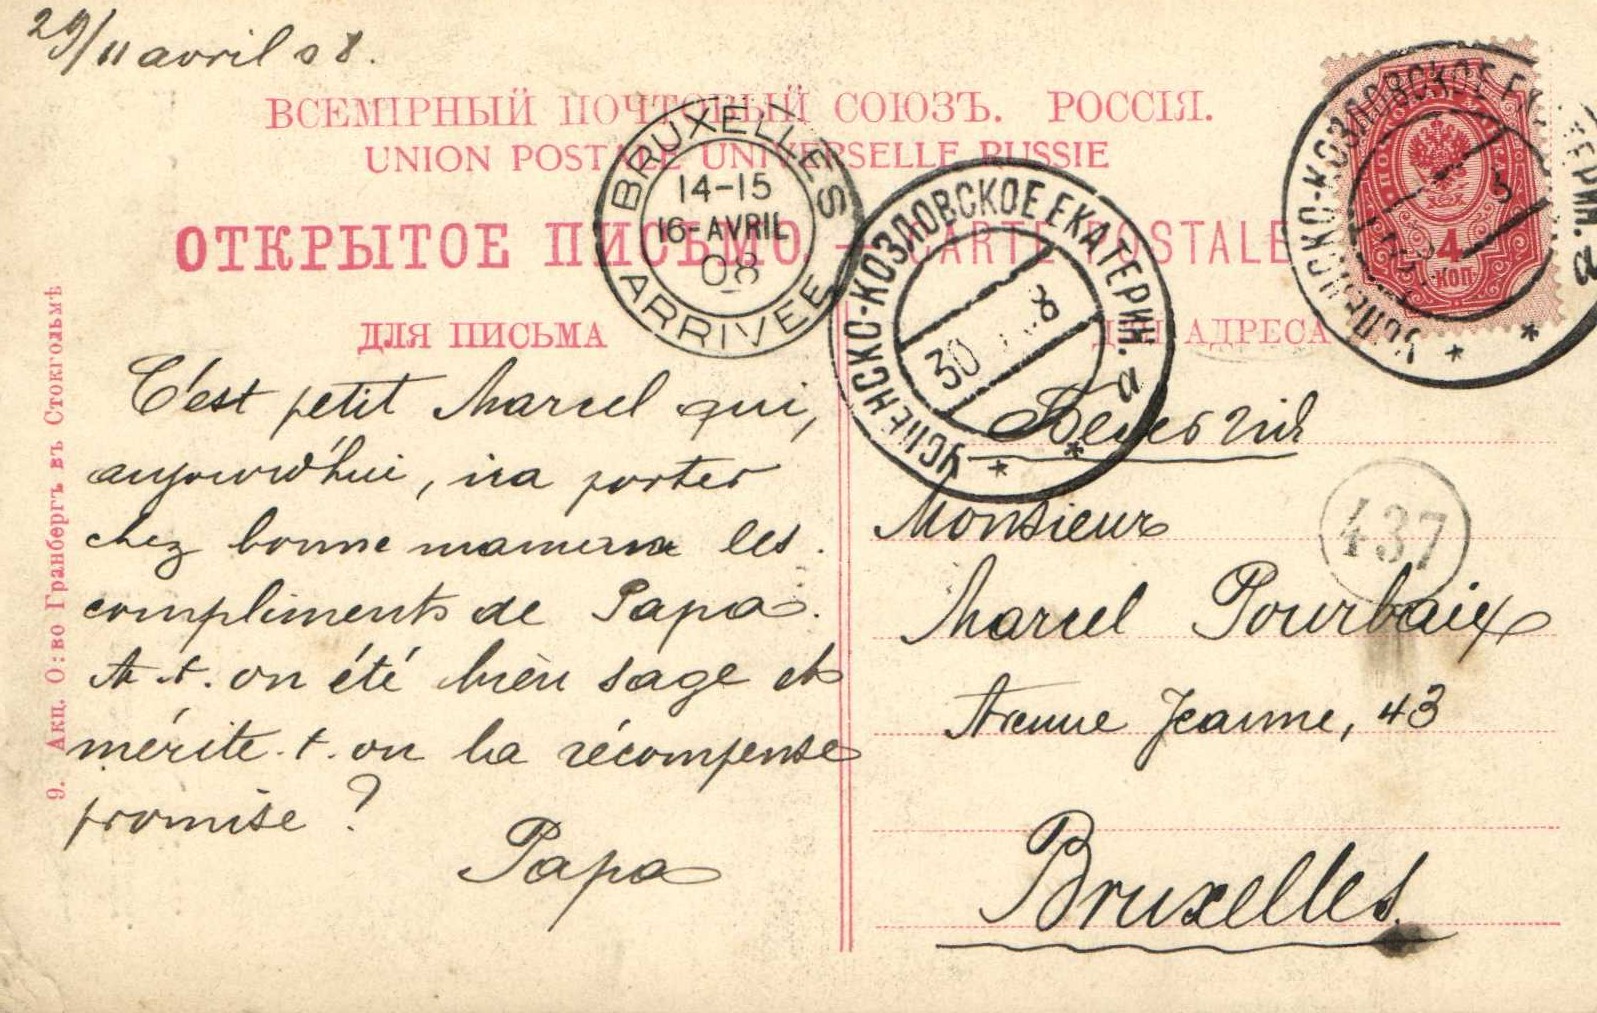 29/11 avril 08.
ВСЕМІРНЫЙ ПОЧТОВЫЙ СОЮЗЪ. РОССІЯ.
UNION POSTALE UNIVERSELLE RUSSIE
ОТКРЫТОЕ ПИСЬМО. — CARTE POSTALE
ДЛЯ ПИСЬМА
ДЛЯ АДРЕСА
BRUXELLES
14-15
16-AVRIL
08
ARRIVEE
УСПЕНСКО-КОЗЛОВСКОЕ ЕКАТЕРИН. а
30
8
УСПЕНСКО-КОЗЛОВСКОЕ ЕКАТЕРИН. а
4
КОП.
C'est petit Marcel qui,
aujourd'hui, ira porter
chez bonne maman les
compliments de Papa.
A-t-on été bien sage et
mérite-t-on la récompense
promise ?
Papa
Бельгія
Monsieur
437
Marcel Pourbaix
Avenue Jeanne, 43
Bruxelles.
9. Акц. О:во Гранбергъ въ Стокгольмѣ